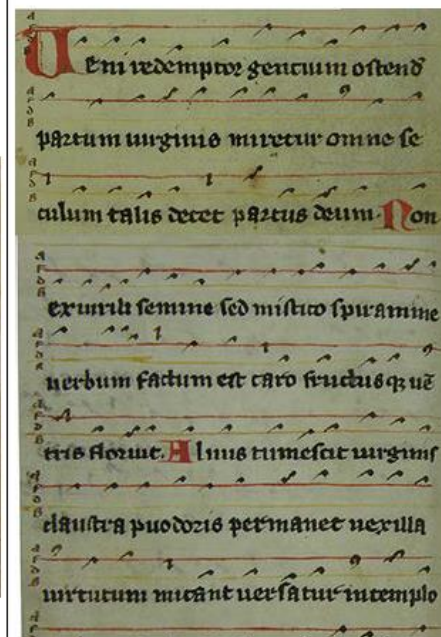 Veni redemptor gentium ostend
partum uirginis miretur omne se
culum talis decet partus deum. Non
ex uirili semine sed mistico spiramine
uerbum factum est caro fructusq; uē
tris floruit. Aluus tumescit uirginis
claustra puodoris permanet uexilla
uirtutum micant uersatur in templo